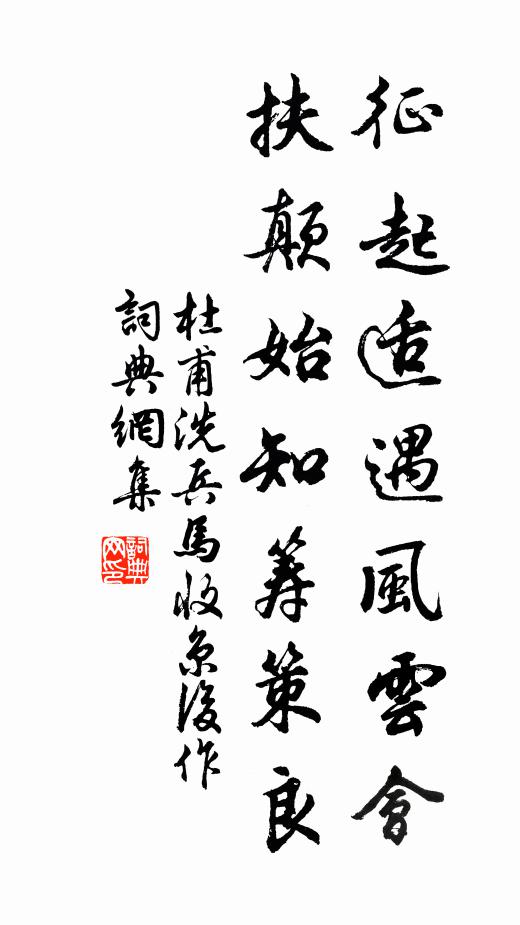 征起适遇風雲會
扶顛始知籌策良
杜甫洗兵馬收京後作
詞典網集
詞典网印